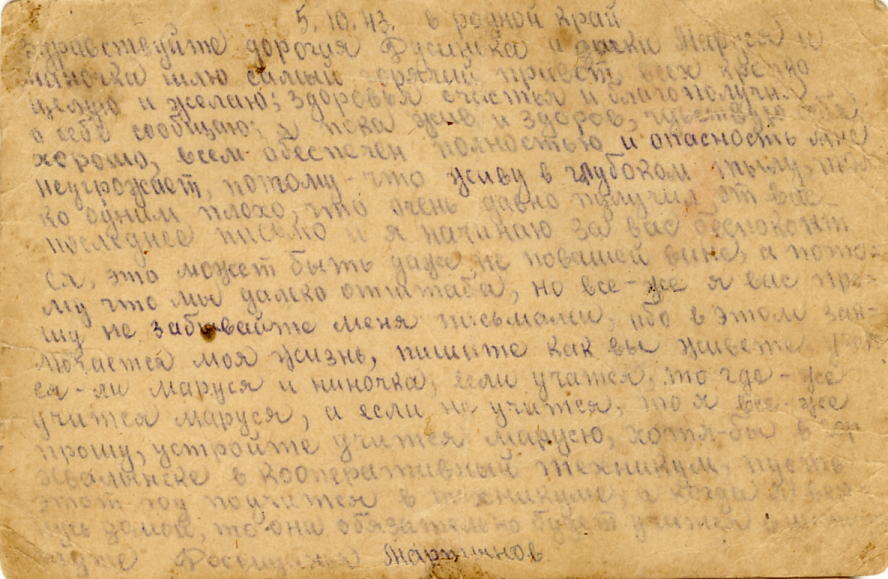 5.10.43. в родной край
Здравствуйте дорогия Фусинька и дочки Маруся и
Ниночка шлю самый горячий привет всех крепко
целую и желаю; здоровья счастья и благополучия
о себе сообщаю; я пока жив и здоров, чувствую себя
хорошо, всем обеспечен полностью и опасность мне
неугрожает, потому-что живу в глубоком тылу,
ко одним плохо, что очень давно получил от вас
последнее письмо и я начинаю за вас беспокоит
ся, это может быть даже не повашей вине, а пото-
му что мы далеко отштаба, но все-же я вас про-
шу не забывайте меня письмами, ибо в этом зак-
лючается моя жизнь, пишите как вы живете
ся-ли Маруся и Ниночка, если учатся, то где-же
учится Маруся, а если не учится, то я все-же
прошу, устройте учится Марусю, хотя-бы в
Хвалынске в кооперативный техникум, пусть
этот год поучится в техникуме, а когда я вер
нусь домой, то они обязателько будет учится в
Мартьянов